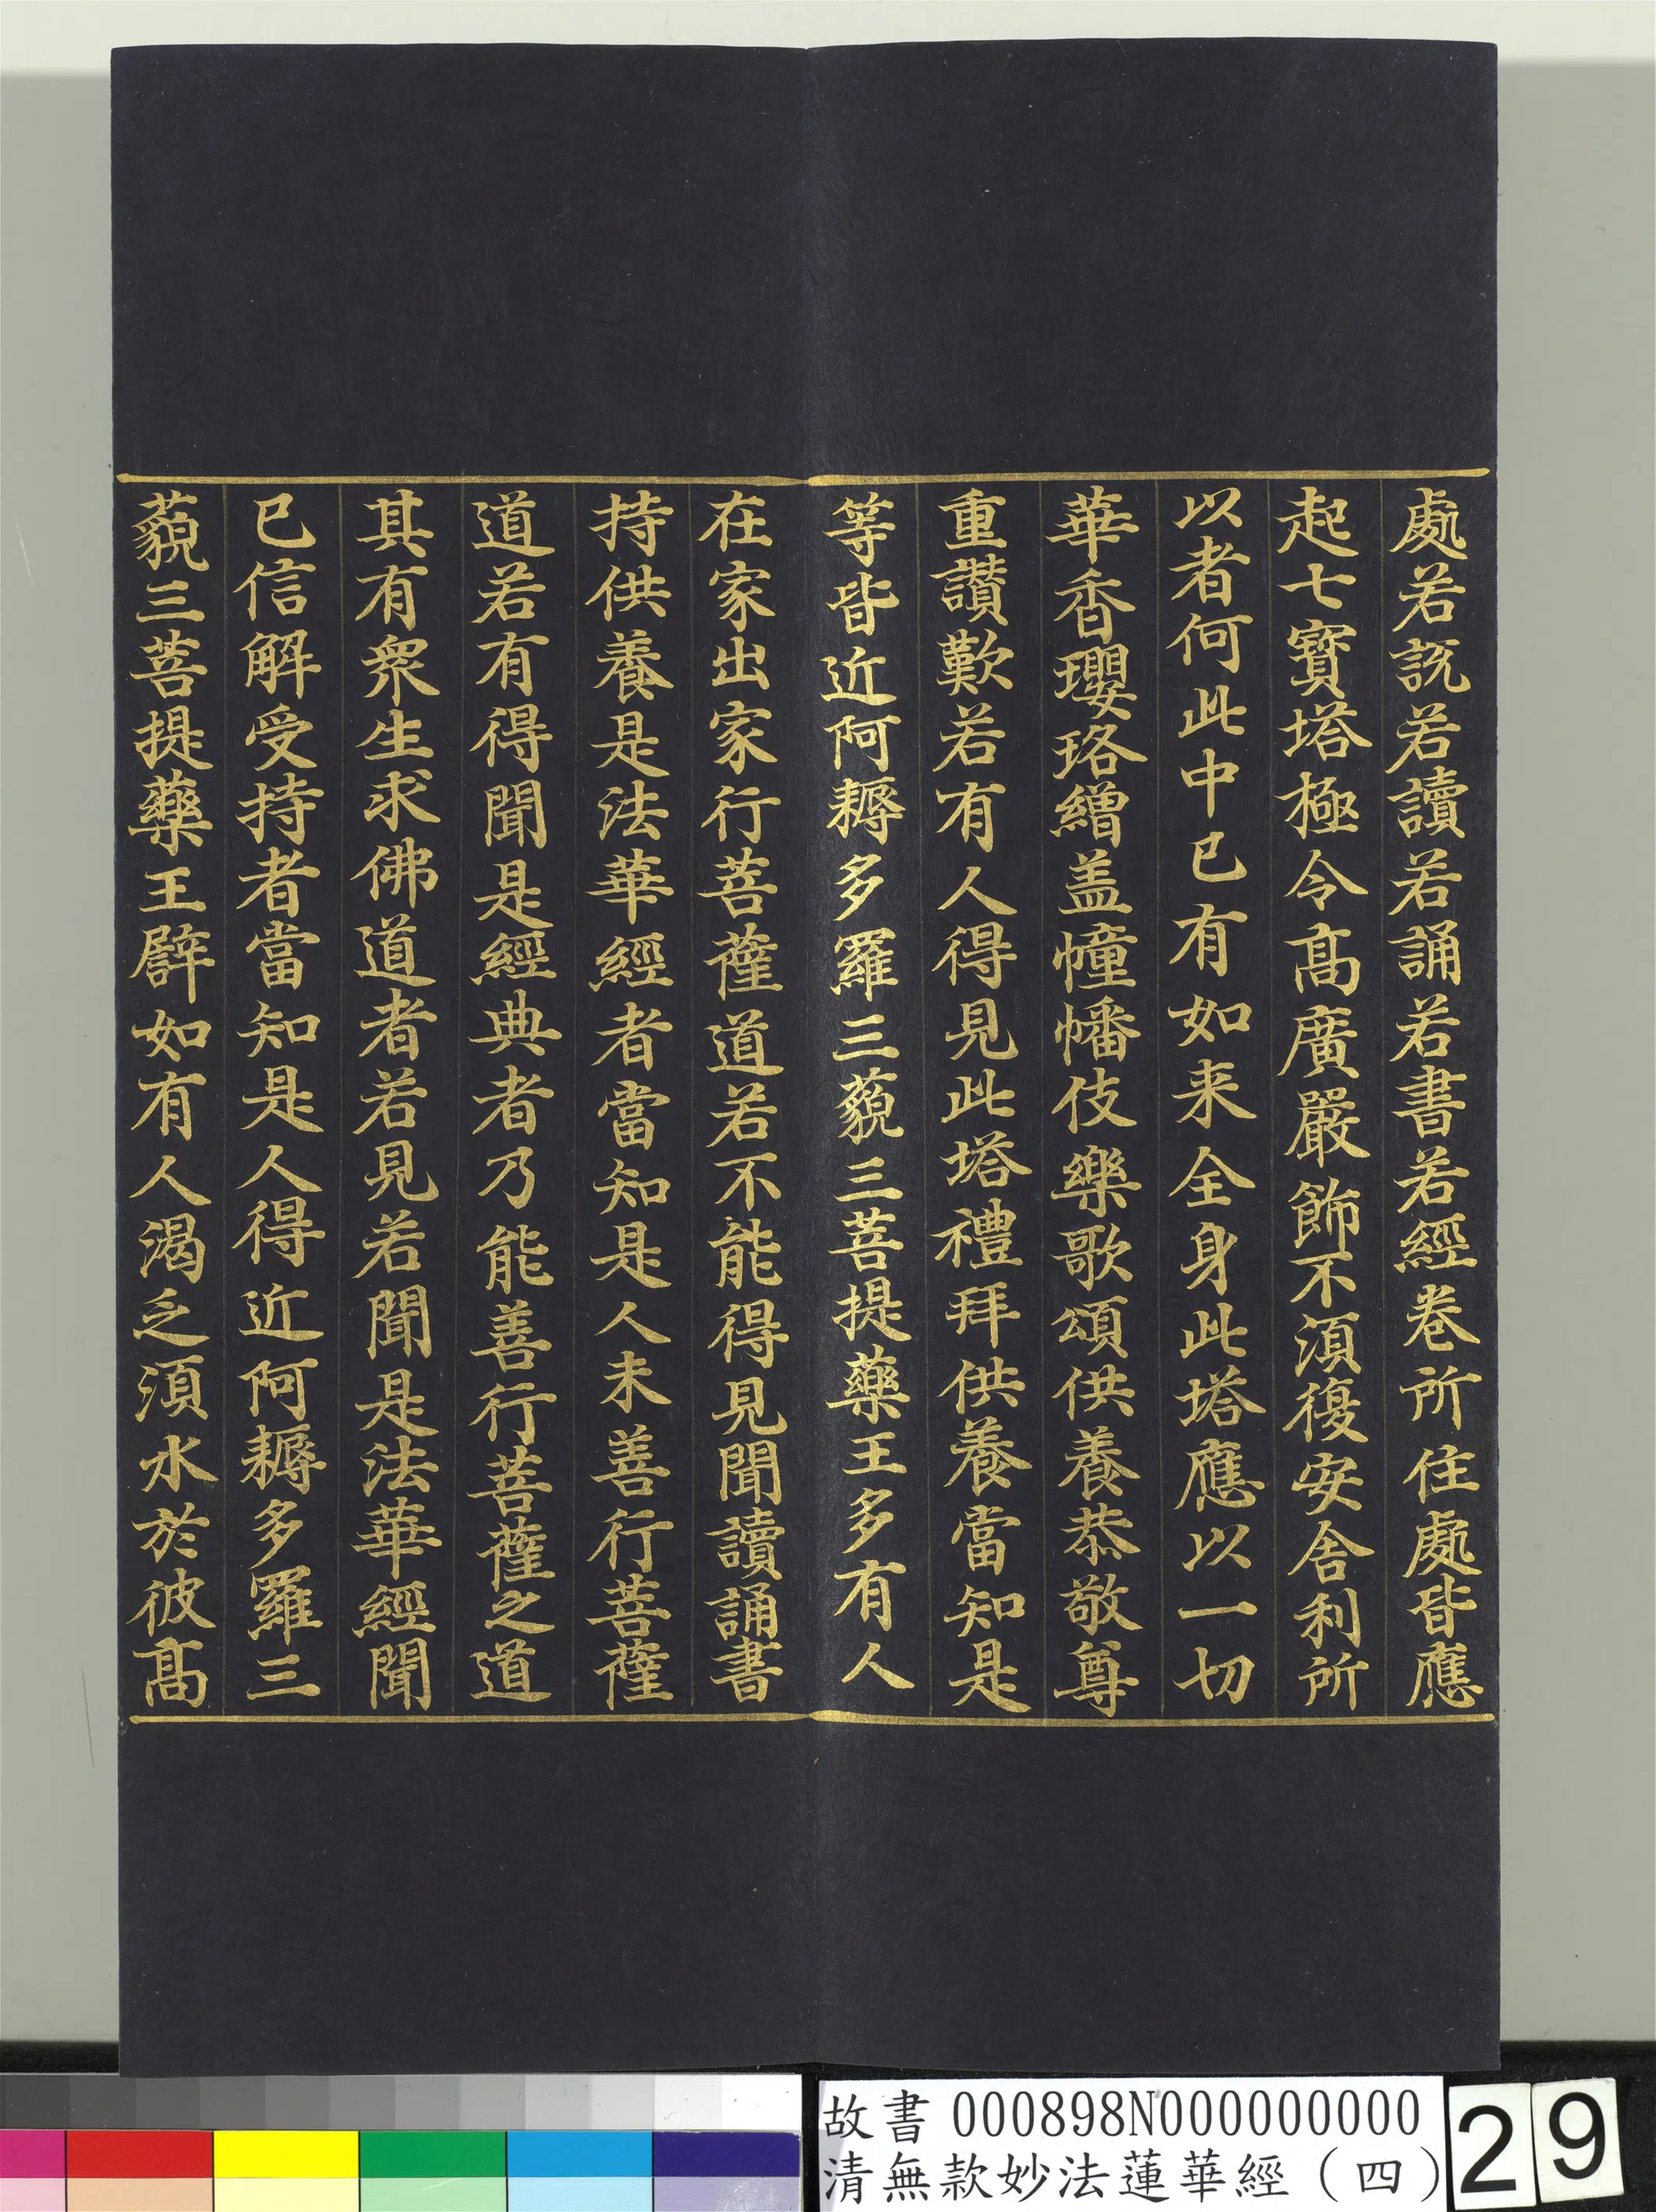 處若說若讀若誦若書若經卷所住處皆應
起七寳塔極令髙廣嚴飾不須復安舍利所
以者何此中已有如来全身此塔應以一切
華香瓔珞繒盖幢幡伎樂歌頌供養恭敬尊
重讚歎若有人得見此塔禮拜供養當知是
等皆近阿耨多羅三藐三菩提藥王多有人
在家出家行菩薩道若不能得見聞讀誦書
持供養是法華經者當知是人未善行菩薩
道若有得聞是經典者乃能善行菩薩之道
其有衆生求佛道者若見若聞是法華經聞
已信解受持者當知是人得近阿耨多羅三
藐三菩提藥王辟如有人渴乏須水於彼髙
故書 000898N000000000
清無款妙法蓮華經（四）
29